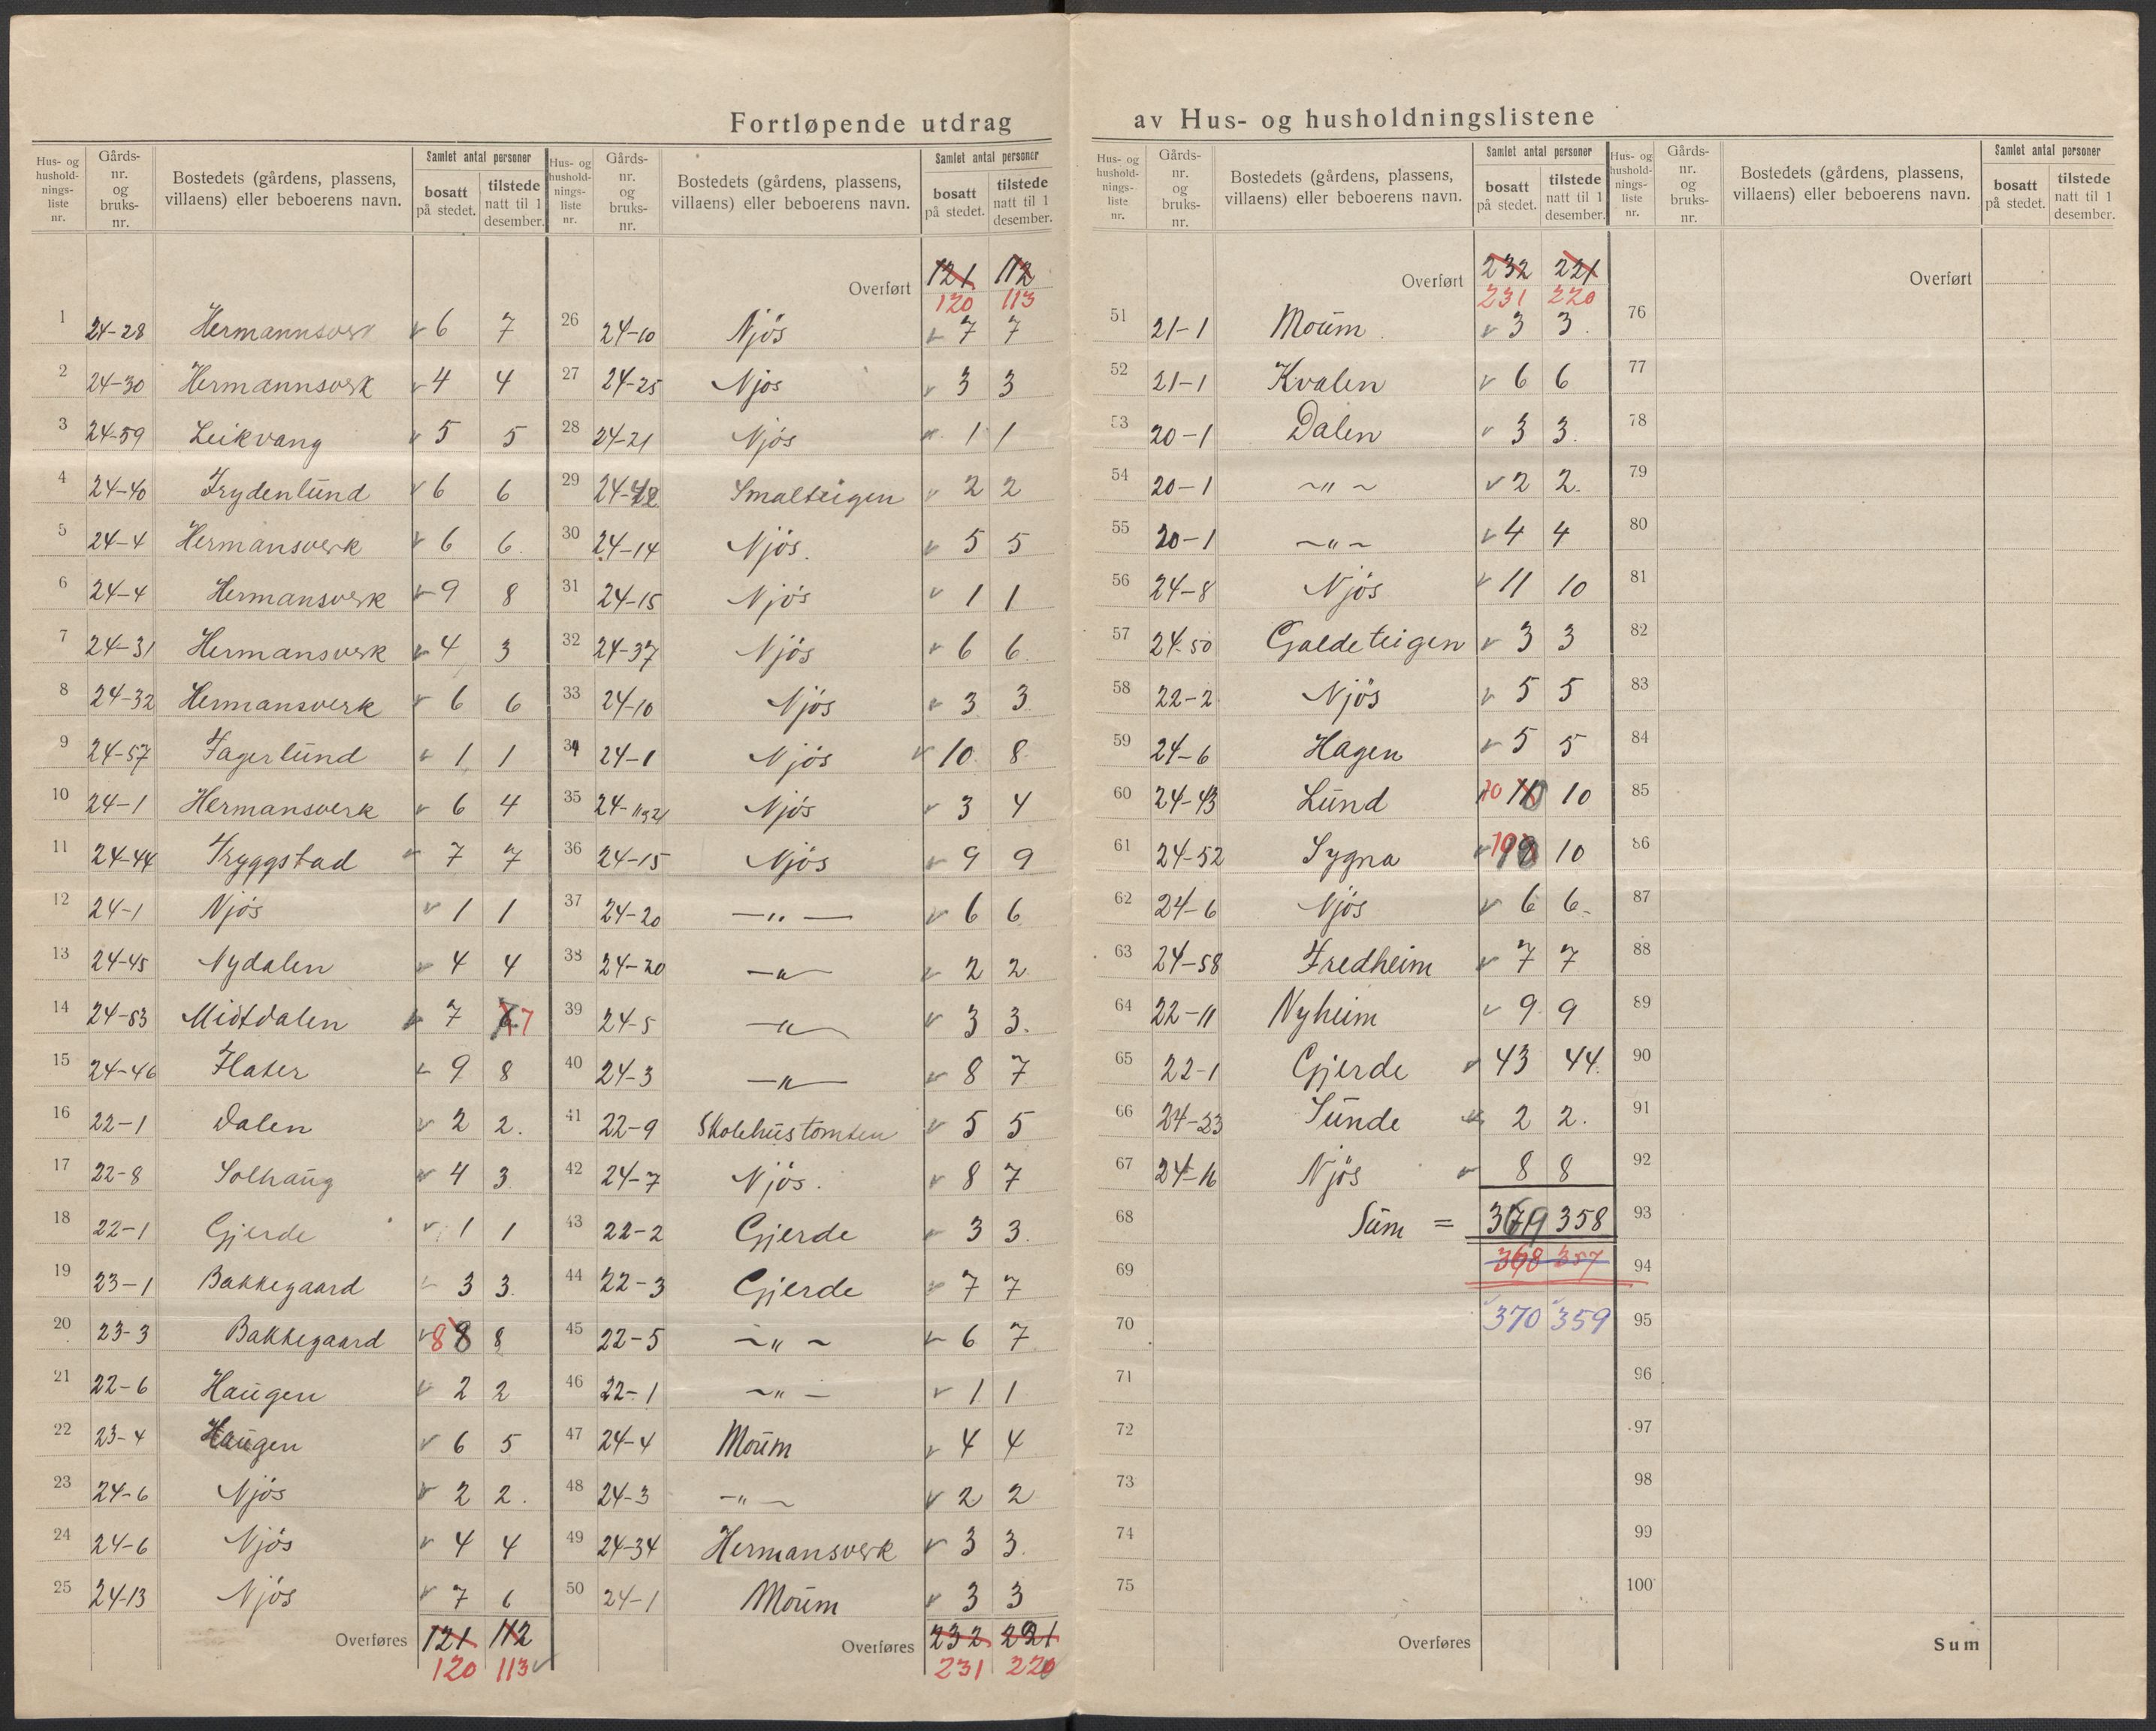 Fortløpende utdrag
Hus- og husholdnings- liste nr. | Gårds- nr. og bruks- nr. | Bostedets (gårdens, plassens, villaens) eller beboerens navn. | Samlet antal personer | bosatt på stedet. | tilstede natt til 1 desember.
1 24-28 Hermannsverk 6 7
2 24-30 Hermannsverk 4 4
3 24-59 Leikvang 5 5
4 24-40 Frydenlund 6 6
5 24-4 Hermansverk 6 6.
6 24-4 Hermansverk 9 8
7 24-31 Hermansverk 4 3
8 24-32 Hermansverk 6 6
9 24-57 Fagerlund 1 1
10 24-1 Hermansverk 6 4
11 24-44 Tryggstad 7 7
12 24-1 Njös 1 1
13 24-45 Nydalen 4 4
14 24-53 Midtdalen 7 7
15 24-46 Flater 9 8
16 22-1 Dalen 2 2.
17 22-8 Solhaug 4 3
18 22-1 Gjerde 1 1
19 23-1 Bakkegaard 3 3.
20 23-3 Bakkegaard 8 8 8
21 22-6 Haugen 2 2
22 23-4 Haugen 6 5
23 24-6 Njös 2 2.
24 24-6 Njös 4 4
25 24-13 Njös 7 6
Overføres 121 112
120 113
Hus- og husholdnings- liste nr. | Gårds- nr. og bruks- nr. | Bostedets (gårdens, plassens, villaens) eller beboerens navn. | Samlet antal personer | bosatt på stedet. | tilstede natt til 1 desember.
Overført 121 112
120 113
26 24-10 Njös 7 7
27 24-25 Njös 3 3
28 24-21 Njös 1 1
29 24-42 Smalteigen 2 2
30 24-14 Njös. 5 5
31 24-15 Njös 1 1
32 24-37 Njös 6 6.
33 24-10 Njös 3 3
34 24-1 Njös 10 8
35 24- Njös 3 4
36 24-15 Njös 9 9
37 24-20 —"— 6 6
38 24-20 —"— 2 2
39 24-5 —"— 3 3.
40 24-3 —"— 8 7
41 22-9 Skolehustomten 5 5
42 24-7 Njös. 8 7
43 22-2 Gjerde 3 3.
44 22-3 Gjerde 7 7
45 22-5 —"— 6 7
46 22-1 —"— 1 1
47 24-4 Moum 4 4
48 24-3 —"— 2 2
49 24-34 Hermansverk 3 3.
50 24-1 Moum 3 3
Overføres 232 221
231 220
av Hus- og husholdningslistene
Hus- og husholdnings- liste nr. | Gårds- nr. og bruks- nr. | Bostedets (gårdens, plassens, villaens) eller beboerens navn. | Samlet antal personer | bosatt på stedet. | tilstede natt til 1 desember.
Overført 232 221
231 220
51 21-1 Moum. 3 3.
52 21-1 Kvalen 6 6
53 20-1 Dalen 3 3.
54 20-1 ~"~ 2 2.
55 20-1 ~"~ 4 4
56 24-8 Njös 11 10
57 24-50 Galdeteigen 3 3
58 22-2 Njös 5 5
59 24-6 Hagen 5 5
60 24-43 Lund 10 10
61 24-52 Sygna 10 10
62 24-6 Njös 6 6.
63 24-58 Fredheim 7 7
64 22-11 Nyheim 9 9
65 22-1 Gjerde 43 44.
66 24-23 Sunde 2 2.
67 24-16 Njös 8 8
68 Sum = 369 358
69 368 357
70 370 359
71
72
73
74
75
Overføres
Hus- og husholdnings- liste nr. | Gårds- nr. og bruks- nr. | Bostedets (gårdens, plassens, villaens) eller beboerens navn. | Samlet antal personer | bosatt på stedet. | tilstede natt til 1 desember.
Overført
76
77
78
79
80
81
82
83
84
85
86
87
88
89
90
91
92
93
94
95
96
97
98
99
100
Sum